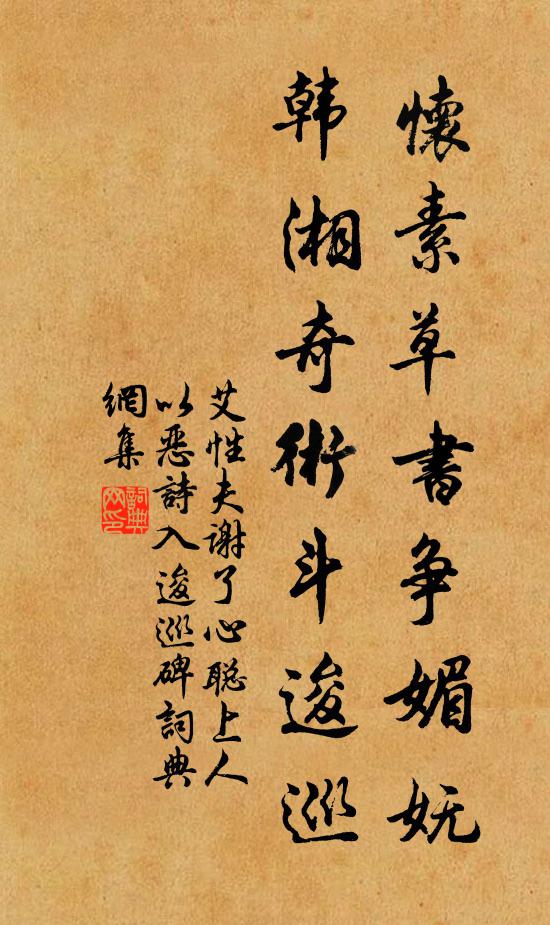 懷素草書争媚妩
韩湘奇術斗逡巡
艾性夫谢了心聪上人
以恶詩入逡巡碑詞典
網集
詞典
网印